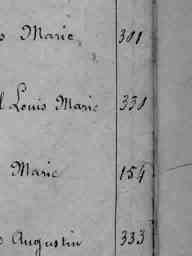 Marie 301
Louis Marie 330
Marie 154
Augustin 333